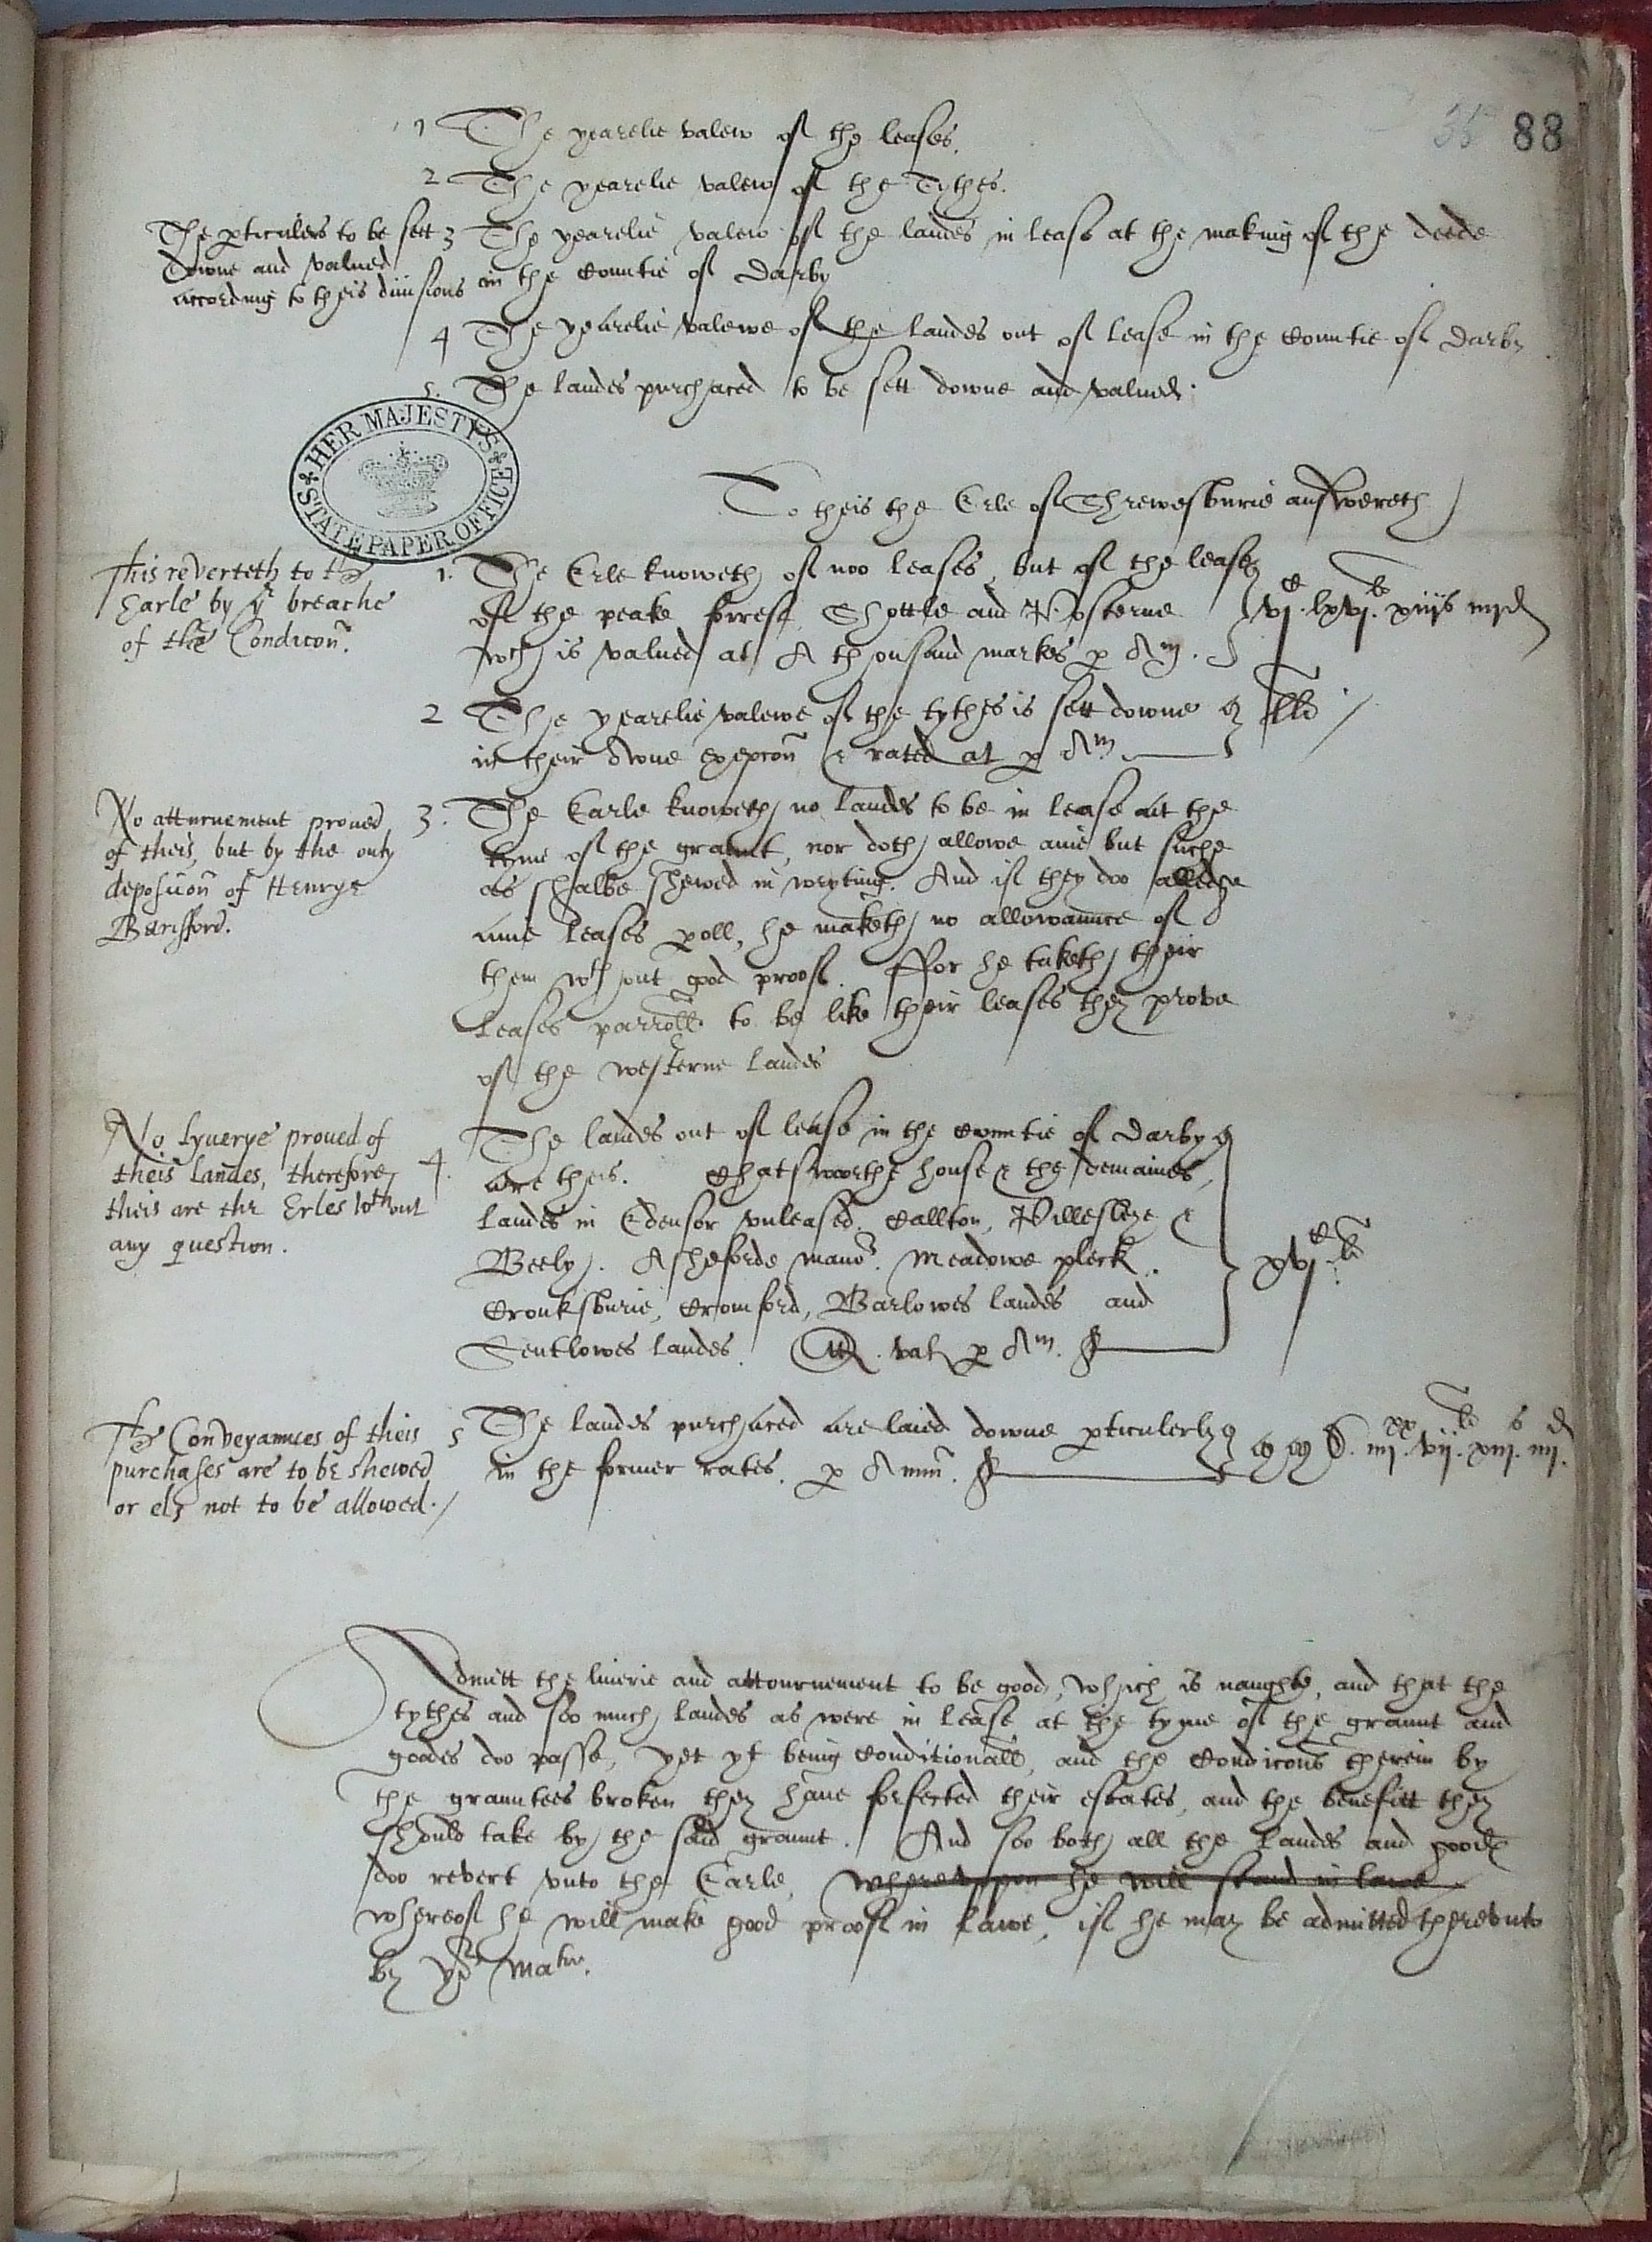 35 88
1 The yearelie valew of the leases.
2 The yearelie valew of the Tythes.
The perticulers to be sett
downe and valued
according to theis diuisions
3 The yearelie valew of the landes in lease at the making of the deede
in the Countie of Darby
4 The yearelie valewe of the landes out of lease in the Countie of Darby
5. The landes purchaced to be sett downe and valued.
HER MAJESTY'S STATE PAPER OFFICE
To theis the Erle of Shrewesburie answereth
This reverteth to the
Earle by ye breache
of the Condicon.
1. The Erle knoweth of noo leases, but of the leases
of the peake forrest, Shottle and Posterne
wch is valued at A thousand markes p Am.
vjC lxvj li xiijs iiijd
2 The yearelie valewe of the tythes is sett downe
in their owne excepcon & rated at p Am
No atturnement proued
of theis, but by the only
deposicon of Henrye
Barisford.
3. The Earle knoweth no landes to be in lease att the
tyme of the graunt, nor doth allowe anie but suche
as shalbe shewed in wryting. And if they doo alledge
anie leases poll, he maketh no allowaunce of
them wthout good proof. Ffor he taketh their
leases parroll to be like their leases they prove
of the westerne landes
No Lyuerye proued of
theis landes, therefore
theis are the Erles wthout
any question.
4. The landes out of lease in the Countie of Darby
are theis. Chatsworthe house & the demaines,
landes in Edensor vnleased. Callton, Pillesleye &
Beely. Asheforde manor. Meadowe pleck.
Cronksburie, Cromford, Barlowes landes and
Sentlowes landes. val p Am.
xvjC li
The Conveyaunces of theis
purchases are to be shewed
or els not to be allowed.
5 The landes purchaced are laied downe perticulerly
in the former rates. p Annu.
iiijxx vij li xiijs iiijd
Admitt the liuerie and attournement to be good, which is naught, and that the
tythes and soo much landes as were in lease at the tyme of the graunt and
goodes doo passe, yet yt being Conditionall, and the Condicons therein by
the grauntees broken they haue forfected their estates, and the benefitt they
should take by the said graunt. And soo both all the landes and goodes
doo revert vnto the Earle, wherevppon he will stand in lawe
whereof he will make good proof in Lawe, if he may be admitted therevnto
by yor Matie.